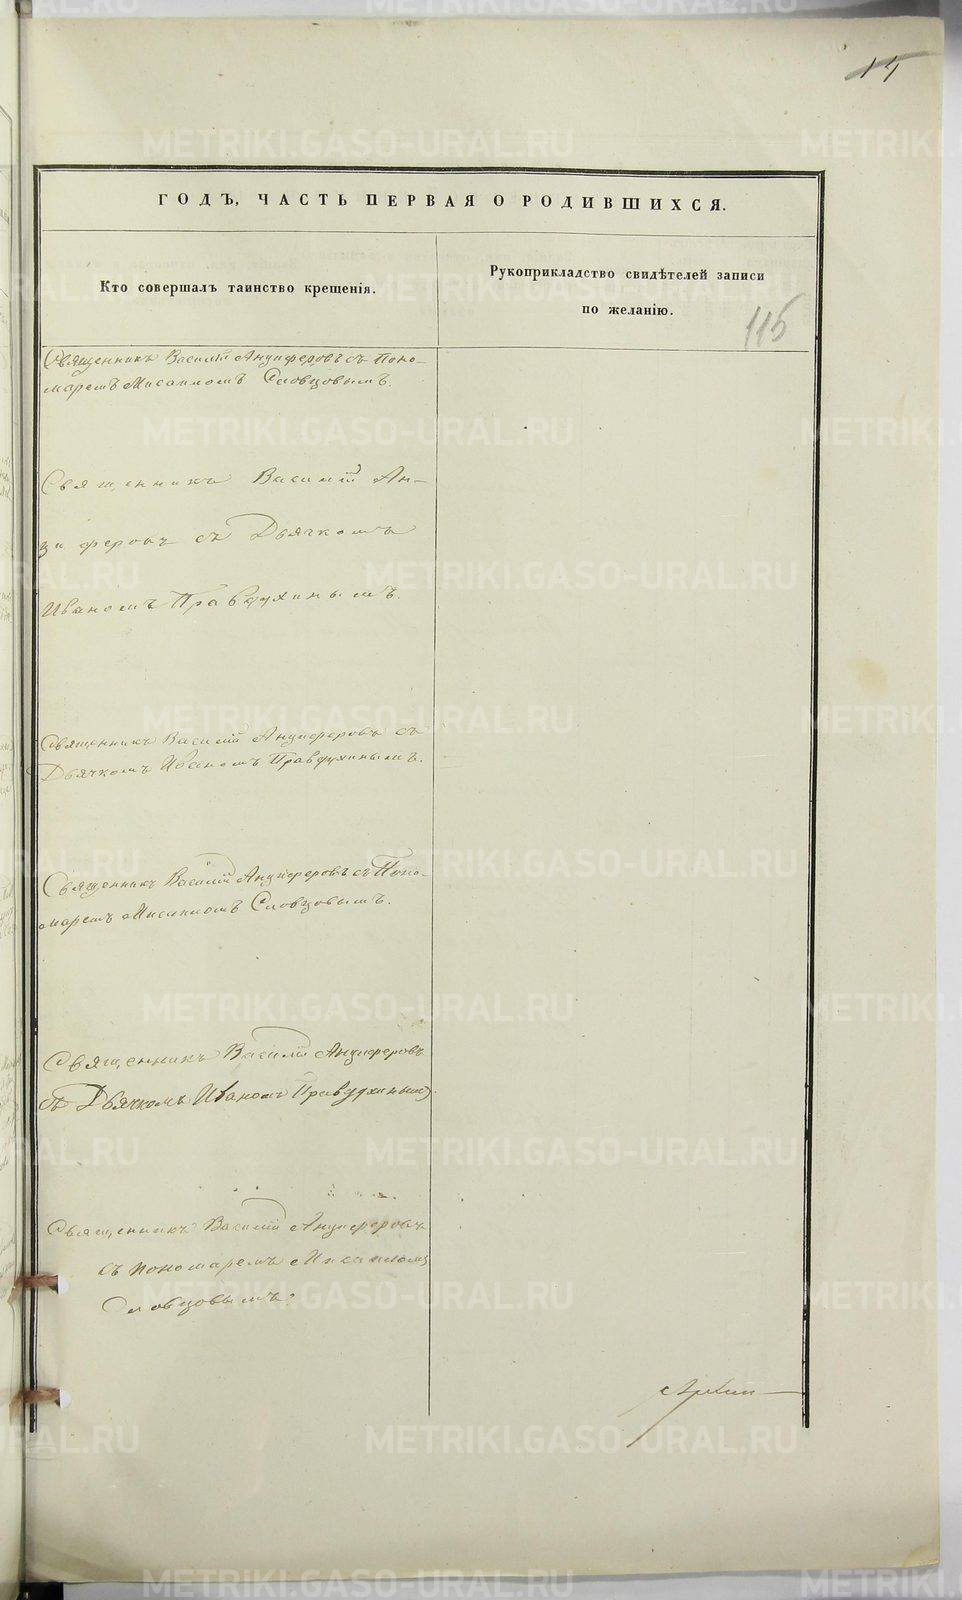 14
ГОДЪ, ЧАСТЬ ПЕРВАЯ О РОДИВШИХСЯ.
Кто совершалъ таинство крещенія.
Рукоприкладство свидѣтелей записи
по желанію.
115
Священникъ Василій Анциферовъ съ Поно-
маремъ Мисаиломъ Словцовымъ.
Священникъ Василій Ан-
циферовъ съ Дьячкомъ
Иваномъ Правдухинымъ.
Священникъ Василій Анциферовъ съ
Дьячкомъ Иваномъ Правдухинымъ.
Священникъ Василій Анциферовъ съ Поно-
маремъ Мисаиломъ Словцовымъ.
Священникъ Василій Анциферовъ
съ Дьячкомъ Иваномъ Правдухинымъ
Священникъ Василій Анциферовъ
съ пономаремъ Мисаиломъ
Словцовымъ.
METRIKI.GASO-URAL.RU